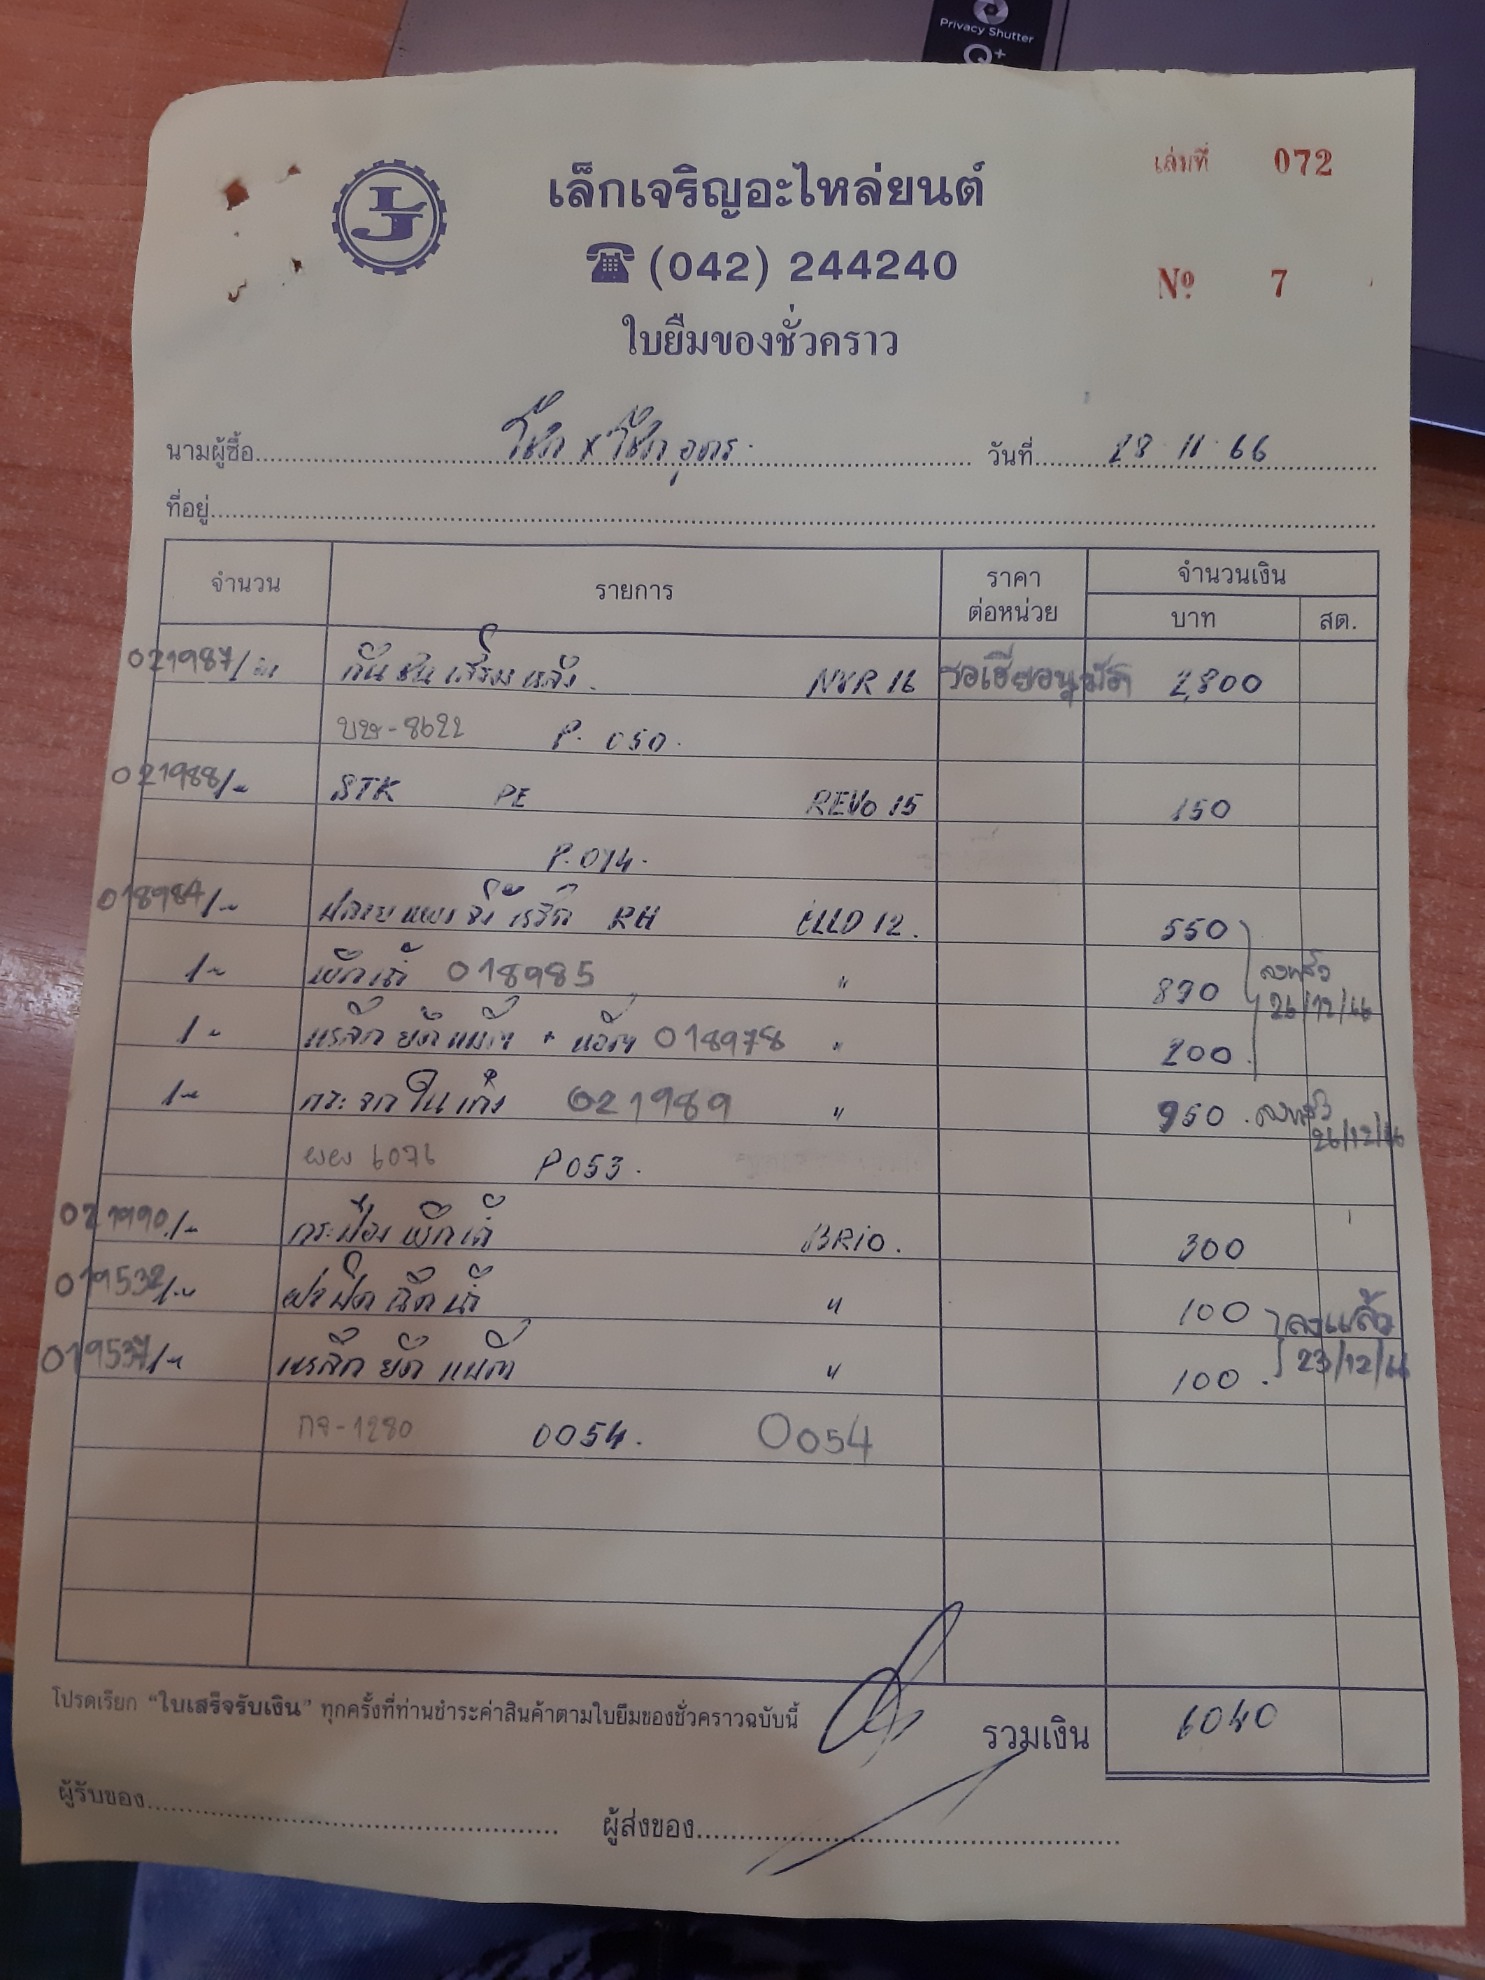 Privacy Shutter
LJ
เล็กเจริญอะไหล่ยนต์
เล่มที่ 072
(042) 244240
No 7
ใบยืมของชั่วคราว
นามผู้ซื้อ โชค x โชค อุดร. วันที่ 28 . 11 . 66
ที่อยู่
จำนวน รายการ ราคาต่อหน่วย จำนวนเงิน
บาท สต.
021987/ กันชนเสริมหลัง. NVR 16 รอเฮียอนุมัติ 2,800
บษ-8622 P. 050.
021988/ STK PE REVO 15 150
P. 014.
018984/ RH ALLD 12. 550
1 018985 " 890 ลงแล้ว
26/12/66
1 พลาสติก ยึด 018978 " 200
1 กระจกในเก๋ง 021989 " 950 . ลงแล้ว
26/12/66
ผผ 6076 P053.
021990/ BRIO. 300
019532/ ฝาปิด ฉีดน้ำ " 100 ลงแล้ว
019537/ ยึด " 100 . 23/12/66
กจ-1280 0054. 0054
โปรดเรียก "ใบเสร็จรับเงิน" ทุกครั้งที่ท่านชำระค่าสินค้าตามใบยืมของชั่วคราวฉบับนี้
รวมเงิน 6040
ผู้รับของ ผู้ส่งของ